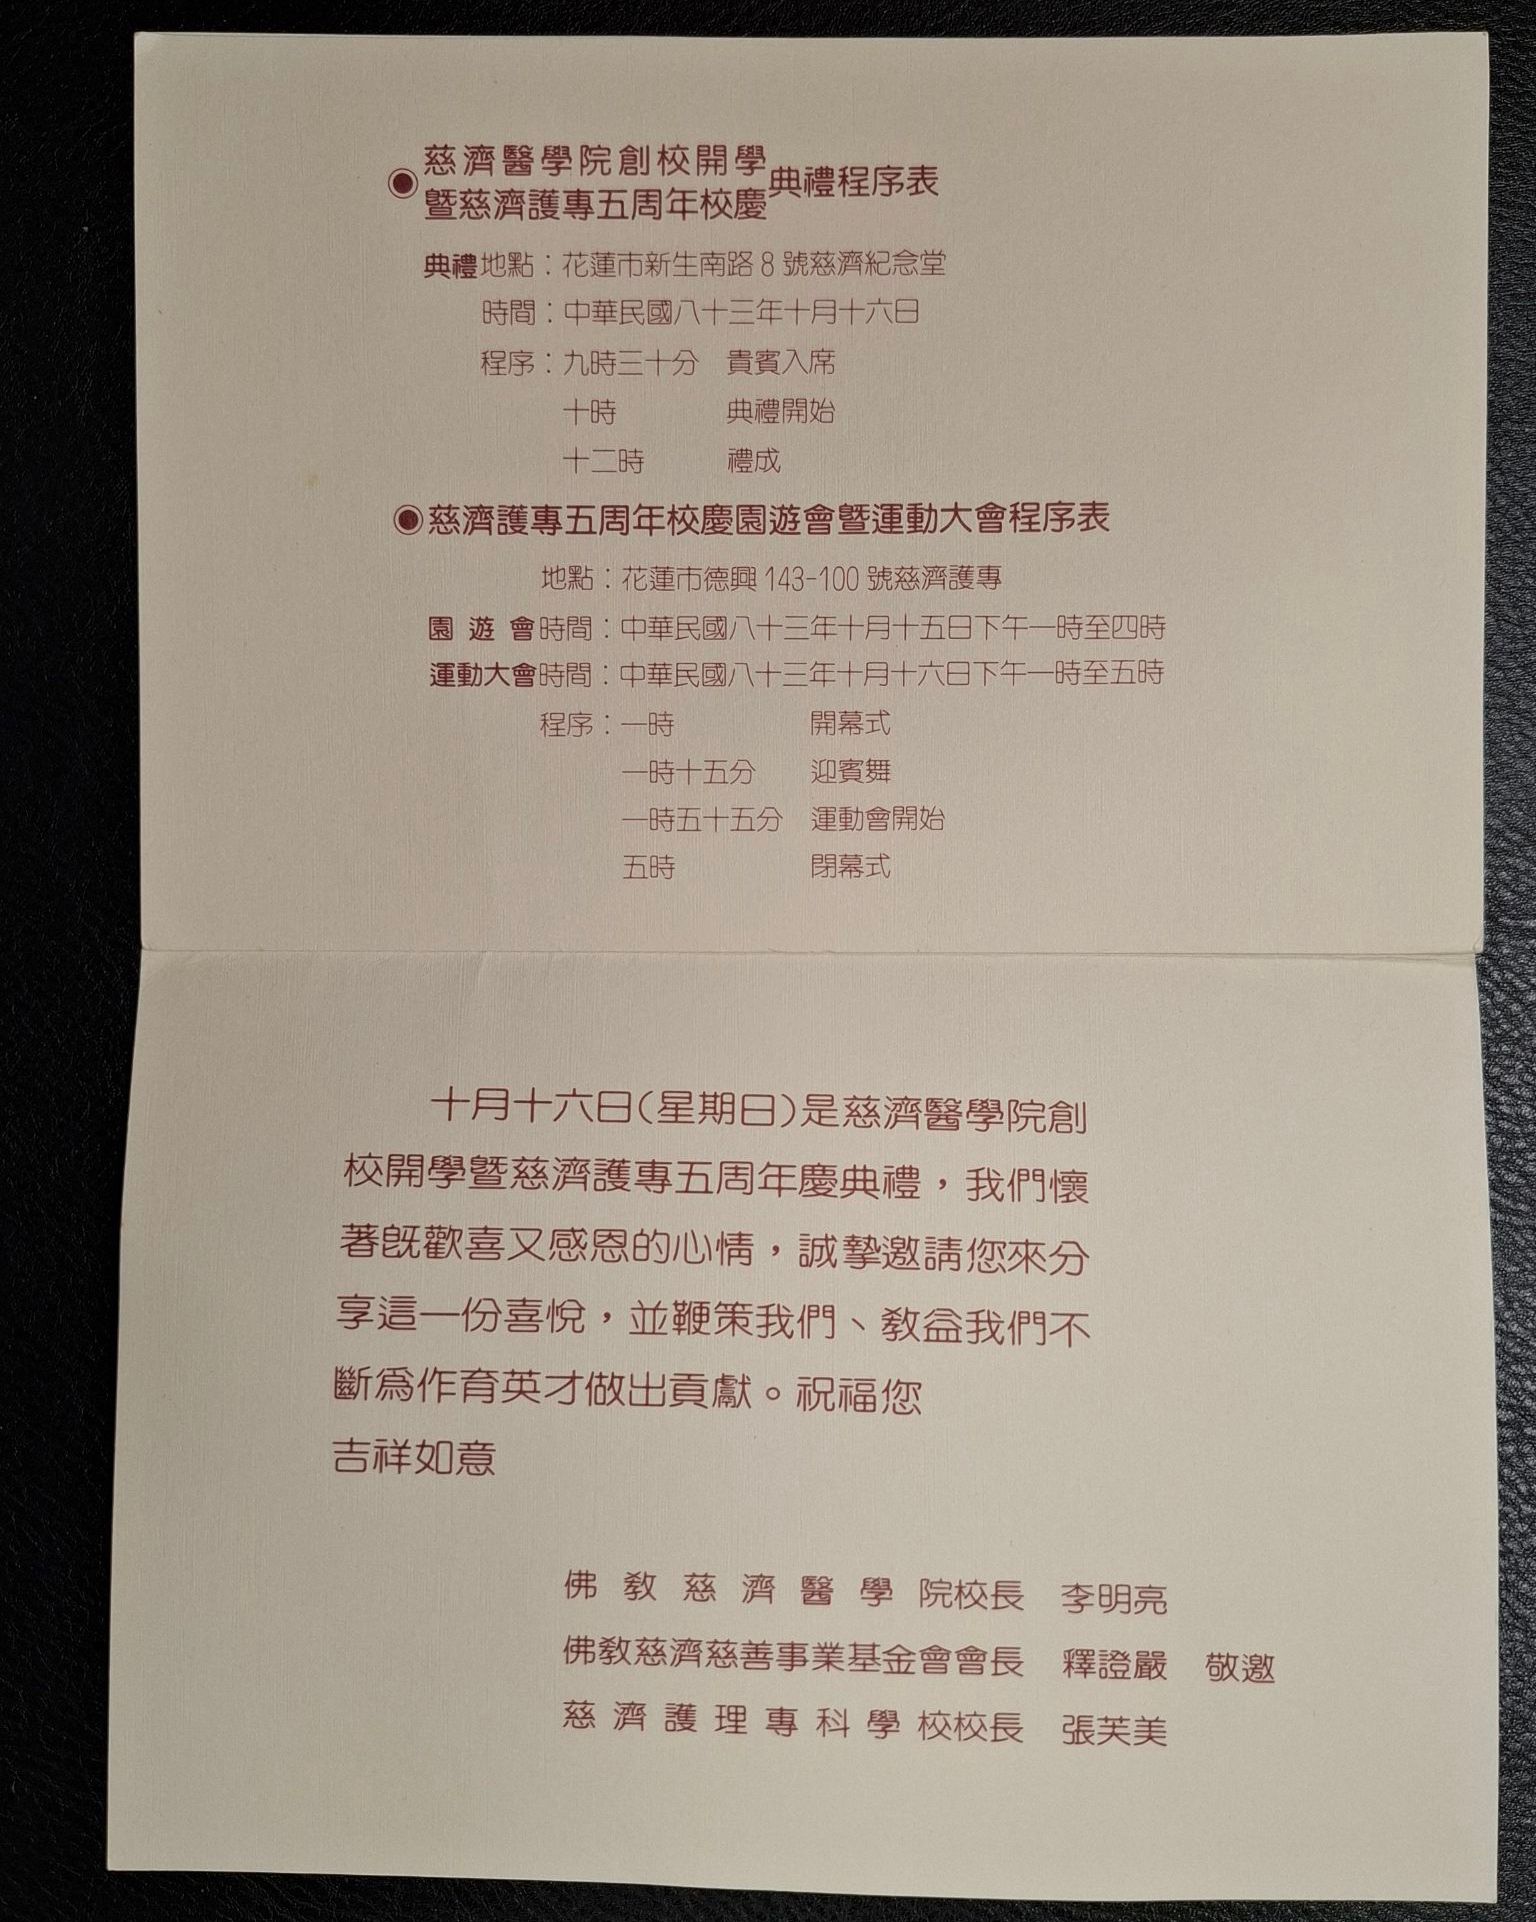 ◉慈濟醫學院創校開學
暨慈濟護專五周年校慶典禮程序表
典禮地點：花蓮市新生南路8號慈濟紀念堂
時間：中華民國八十三年十月十六日
程序：九時三十分 貴賓入席
十時 典禮開始
十二時 禮成
◉慈濟護專五周年校慶園遊會暨運動大會程序表
地點：花蓮市德興143-100號慈濟護專
園遊會時間：中華民國八十三年十月十五日下午一時至四時
運動大會時間：中華民國八十三年十月十六日下午一時至五時
程序：一時 開幕式
一時十五分 迎賓舞
一時五十五分 運動會開始
五時 閉幕式
十月十六日(星期日)是慈濟醫學院創
校開學暨慈濟護專五周年慶典禮，我們懷
著既歡喜又感恩的心情，誠摯邀請您來分
享這一份喜悅，並鞭策我們、教益我們不
斷為作育英才做出貢獻。祝福您
吉祥如意
佛教慈濟醫學院校長 李明亮
佛教慈濟慈善事業基金會會長 釋證嚴 敬邀
慈濟護理專科學校校長 張芙美